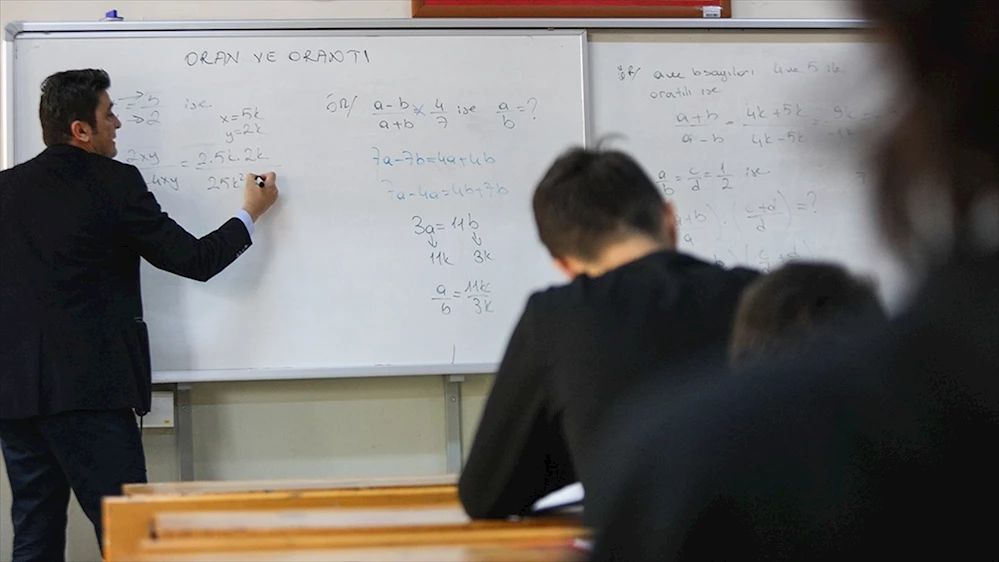 ORAN VE ORANTI
= 5/2 ise
x=5k
y=2k
2xy / 4xy = 2.5k.2k / 25k²
ÖR/ a-b / a+b × 4/7 ise a/b = ?
7a-7b=4a+4b
7a-4a=4b+7b
3a = 11b
11k 3k
a/b = 11k/3k
ÖR/ a ve b sayıları 4 ve 5 ile
orantılı ise
a+b / a-b = 4k+5k / 4k-5k = 9k / -1k
a/b = c/d = 1/2 ise
a+b ) . ( c+d / d ) = ?